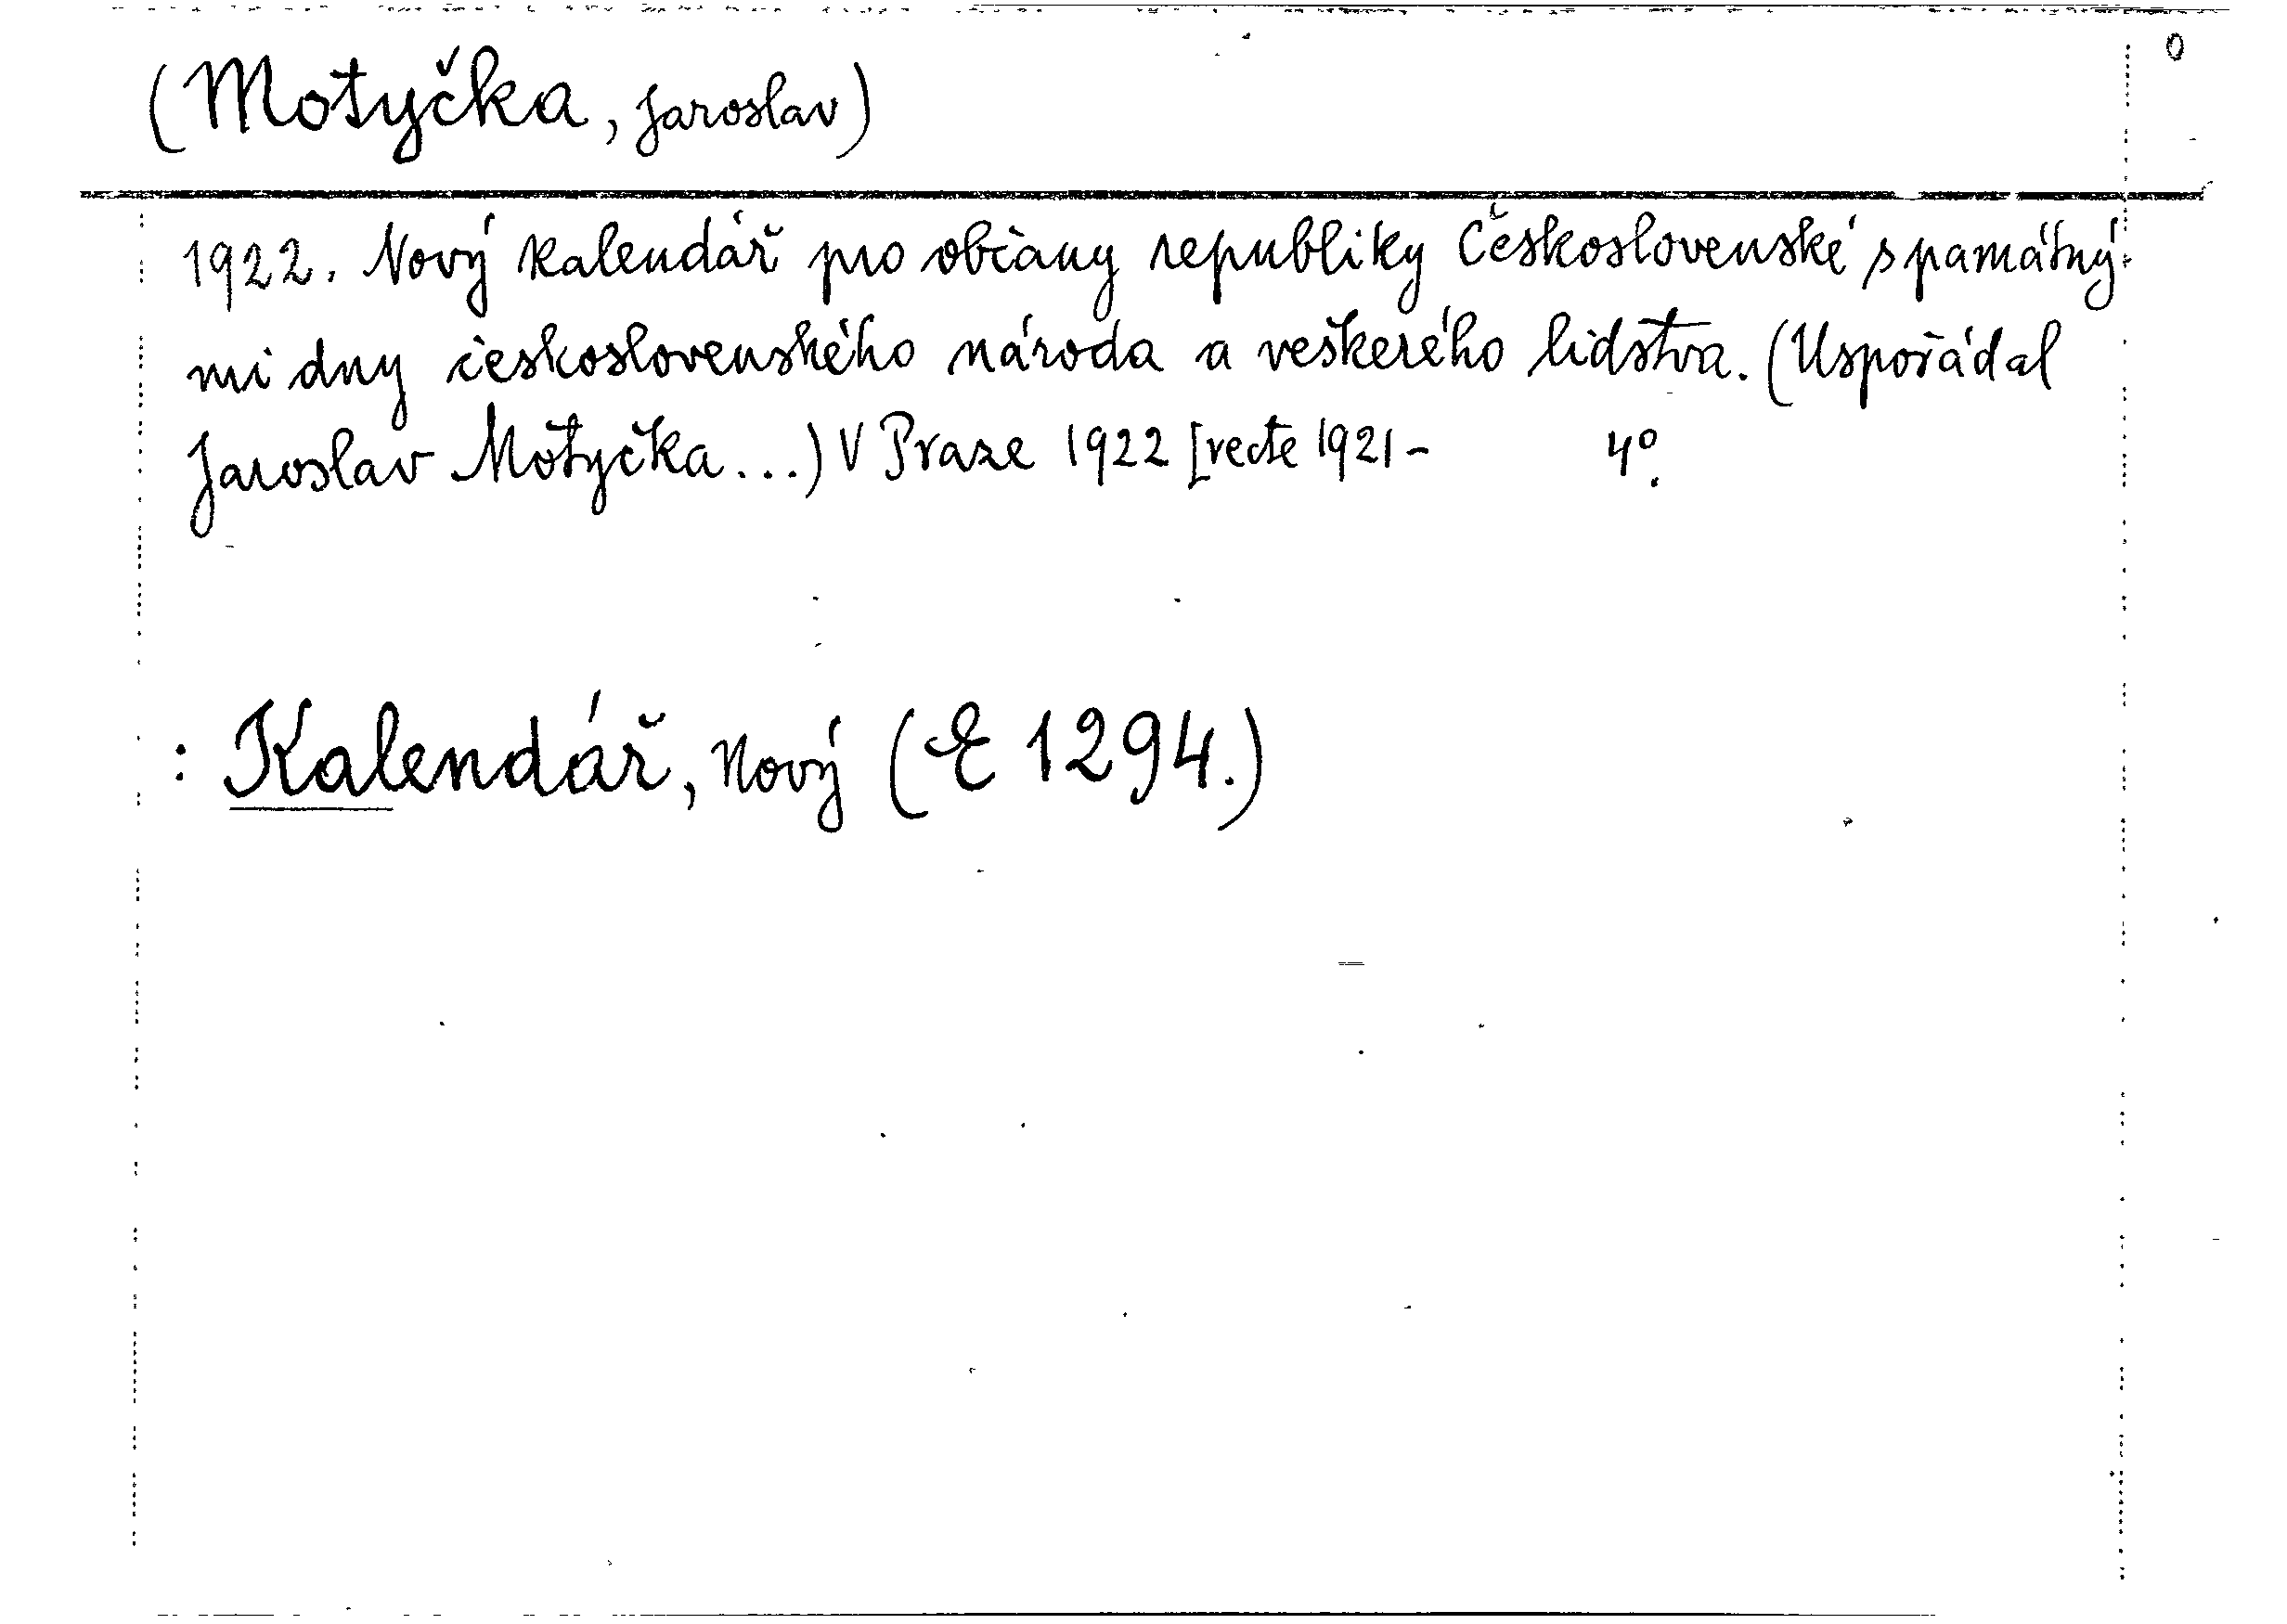 0
(Motyčka, Jaroslav)
1922. Nový kalendář pro občany republiky Československé s památný-
mi dny československého národa a veškerého lidstva. (Uspořádal
Jaroslav Motyčka...) V Praze 1922 [recte 1921- 4°.
: Kalendář, Nový (E 1294.)